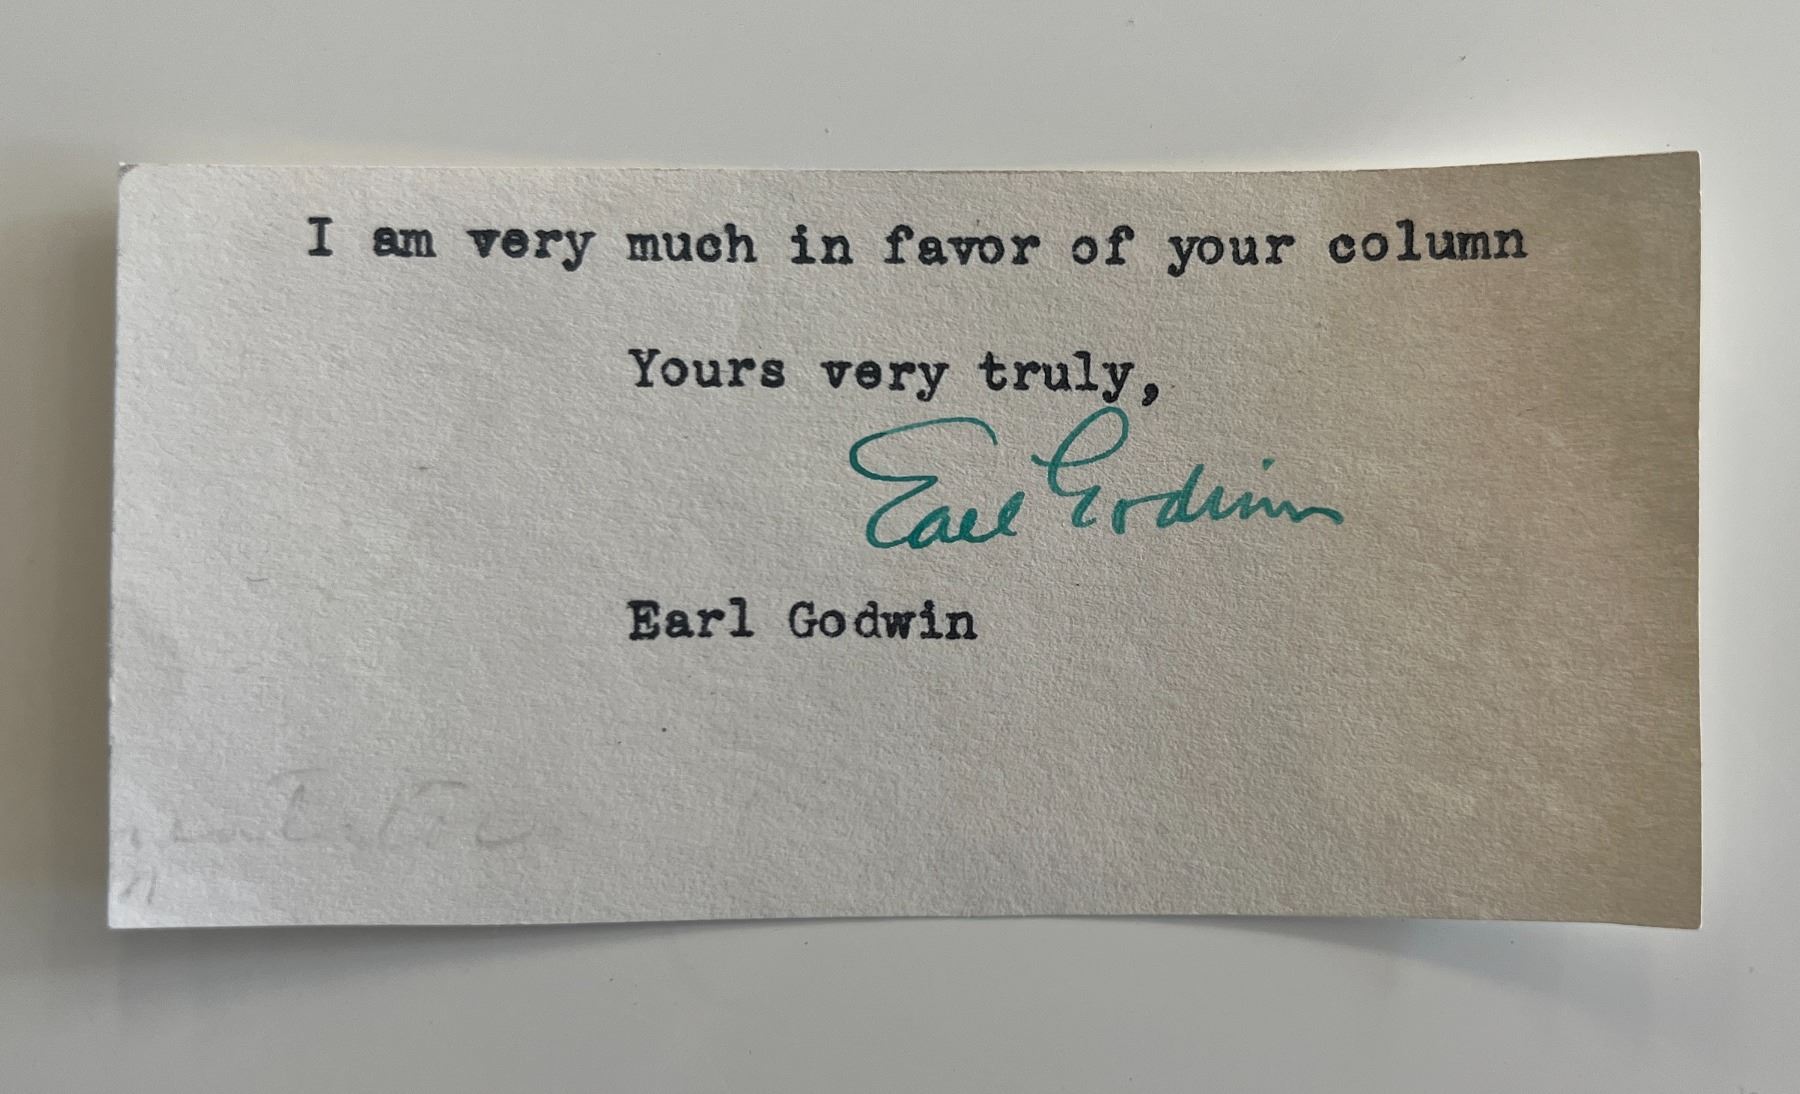 I am very much in favor of your column
Yours very truly,
Earl Godwin
Earl Godwin